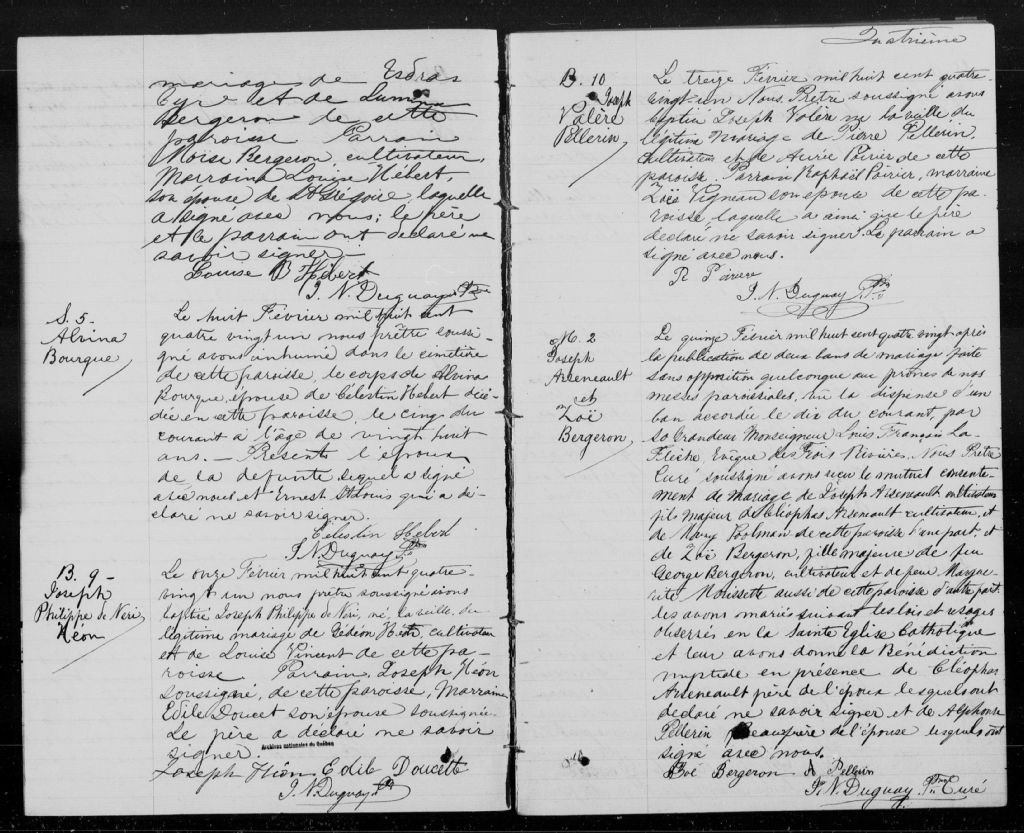 mariage de Esdras
Cyr et de
Bergeron de cette
paroisse Parrain
Moïse Bergeron, cultivateur,
Marraine Louise Hébert,
son épouse de St Grégoire, laquelle
a signé avec nous; le père
et le parrain ont déclaré ne
savoir signer.
Louise B Hébert
J. N. Duguay Ptre
S. 5-
Alvina
Bourque
Le huit Février mil huit cent
quatre vingt un nous prêtre soussi-
gné avons inhumé dans le cimetière
de cette paroisse, le corps de Alvina
Bourque, épouse de Célestin Hébert décé-
dée en cette paroisse, le cinq du
courant à l'âge de vingt huit
ans. — Présents l'époux
de la defunte lequel a signé
avec nous et Ernest St Louis qui a dé-
claré ne savoir signer.
Célestin Hebert
J. N. Duguay Ptre
B. 9-
Joseph
Philippe de Néri
Héon
Le onze Février mil huit cent quatre-
vingt un nous prêtre soussigné avons
baptisé Joseph Philippe de Néri, né, la veille, du
légitime mariage de Gédéon Héon, cultivateur
et de Louise Vincent de cette pa-
roisse Parrain, Joseph Héon
soussigné, de cette paroisse, Marraine
Edile Doucet son épouse soussignée.
Le père a déclaré ne savoir
signer.
Archives nationales du Québec
Joseph Héon Edile Doucette
J. N. Duguay Ptre
Quatrième
B. 10
Joseph
Valère
Pellerin
Le treize Février mil huit cent quatre-
vingt-un Nous Prêtre soussigné avons
baptisé Joseph Valère né la veille du
légitime mariage de Pierre Pellerin,
cultivateur et de Aurée Poirier de cette
paroisse. Parrain Raphaël Poirier, marraine
Zoë Vigneau son épouse de cette pa-
roisse laquelle a ainsi que le père
declaré ne savoir signer. Le parrain a
signé avec nous.
R. Poirier
J. N. Duguay Ptre
M. 2
Joseph
Arseneault
et
Zoë
Bergeron
Le quinze Février mil huit cent quatre vingt après
la publication de deux bans de mariage faite
sans opposition quelconque aux prônes de nos
messes paroissiales, vu la dispense d'un
ban accordée le dix du courant, par
sa Grandeur Monseigneur Louis François La-
flèche Evêque des Trois Rivières, Nous Prêtre
Curé soussigné avons reçu le mutuel consente-
ment de mariage de Joseph Arseneault cultivateur
fils majeur de Cléophas Arseneault cultivateur, et
de Mary Poolman de cette paroisse d'une part; et
de Zoë Bergeron, fille majeure de feu
George Bergeron, cultivateur et de feue Margue-
rite Moussette aussi de cette paroisse d'autre part.
les avons mariés suivant les lois et usages
observés en la Sainte Eglise Catholique
et leur avons donné la Bénédiction
nuptiale en présence de Cléophas
Arseneault père de l'époux lesquels ont
declaré ne savoir signer et de Alphonse
Pellerin beau-frère de l'épouse lesquels ont
signé avec nous.
Zoé Bergeron A Pellerin
J. N. Duguay Ptre Curé